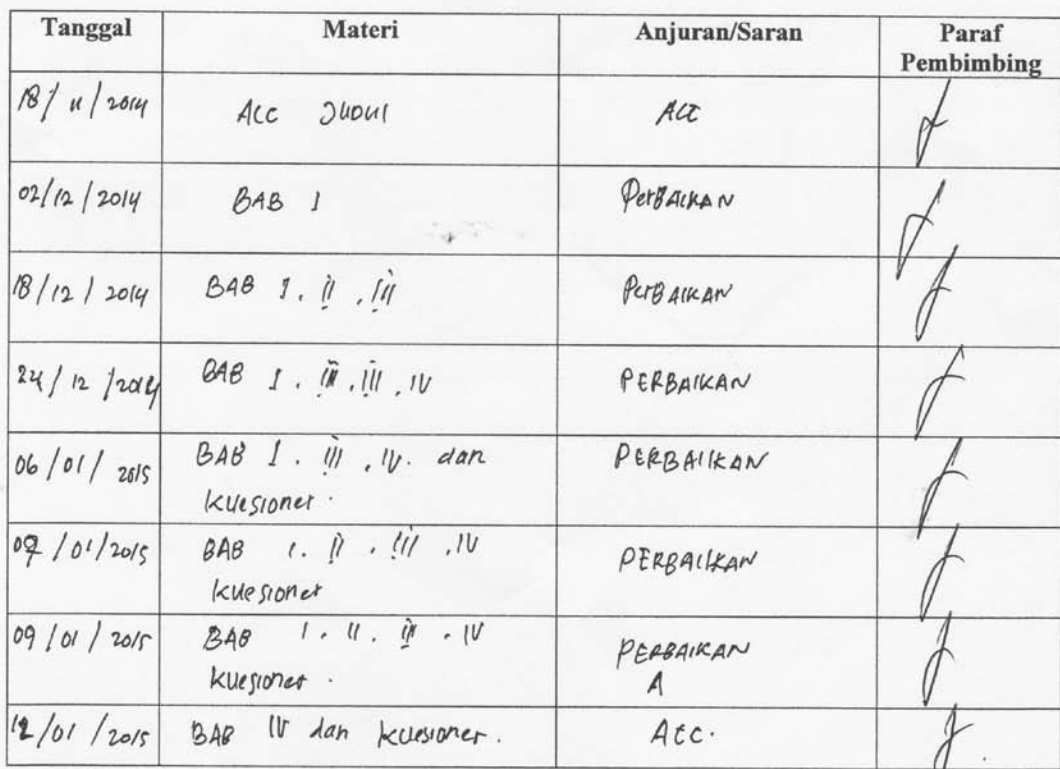 Tanggal Materi Anjuran/Saran Paraf
Pembimbing
18/ 11 / 2014 ACC JUDUI ACC
02/12 / 2014 BAB I PerBAIKAN
18/12 / 2014 BAB I . II . III PerBAIKAN
24/ 12 /2014 BAB I . III . III . IV PERBAIKAN
06 / 01 / 2015 BAB I . III . IV. dan PERBAIIKAN
kuesioner .
07 / 01/2015 BAB I . II . III . IV PERBAIIKAN
kuesioner
09 / 01 / 2015 BAB I . II . III . IV PERBAIKAN
kuesioner . A
12/01 / 2015 BAB IV dan kuesioner . ACC.